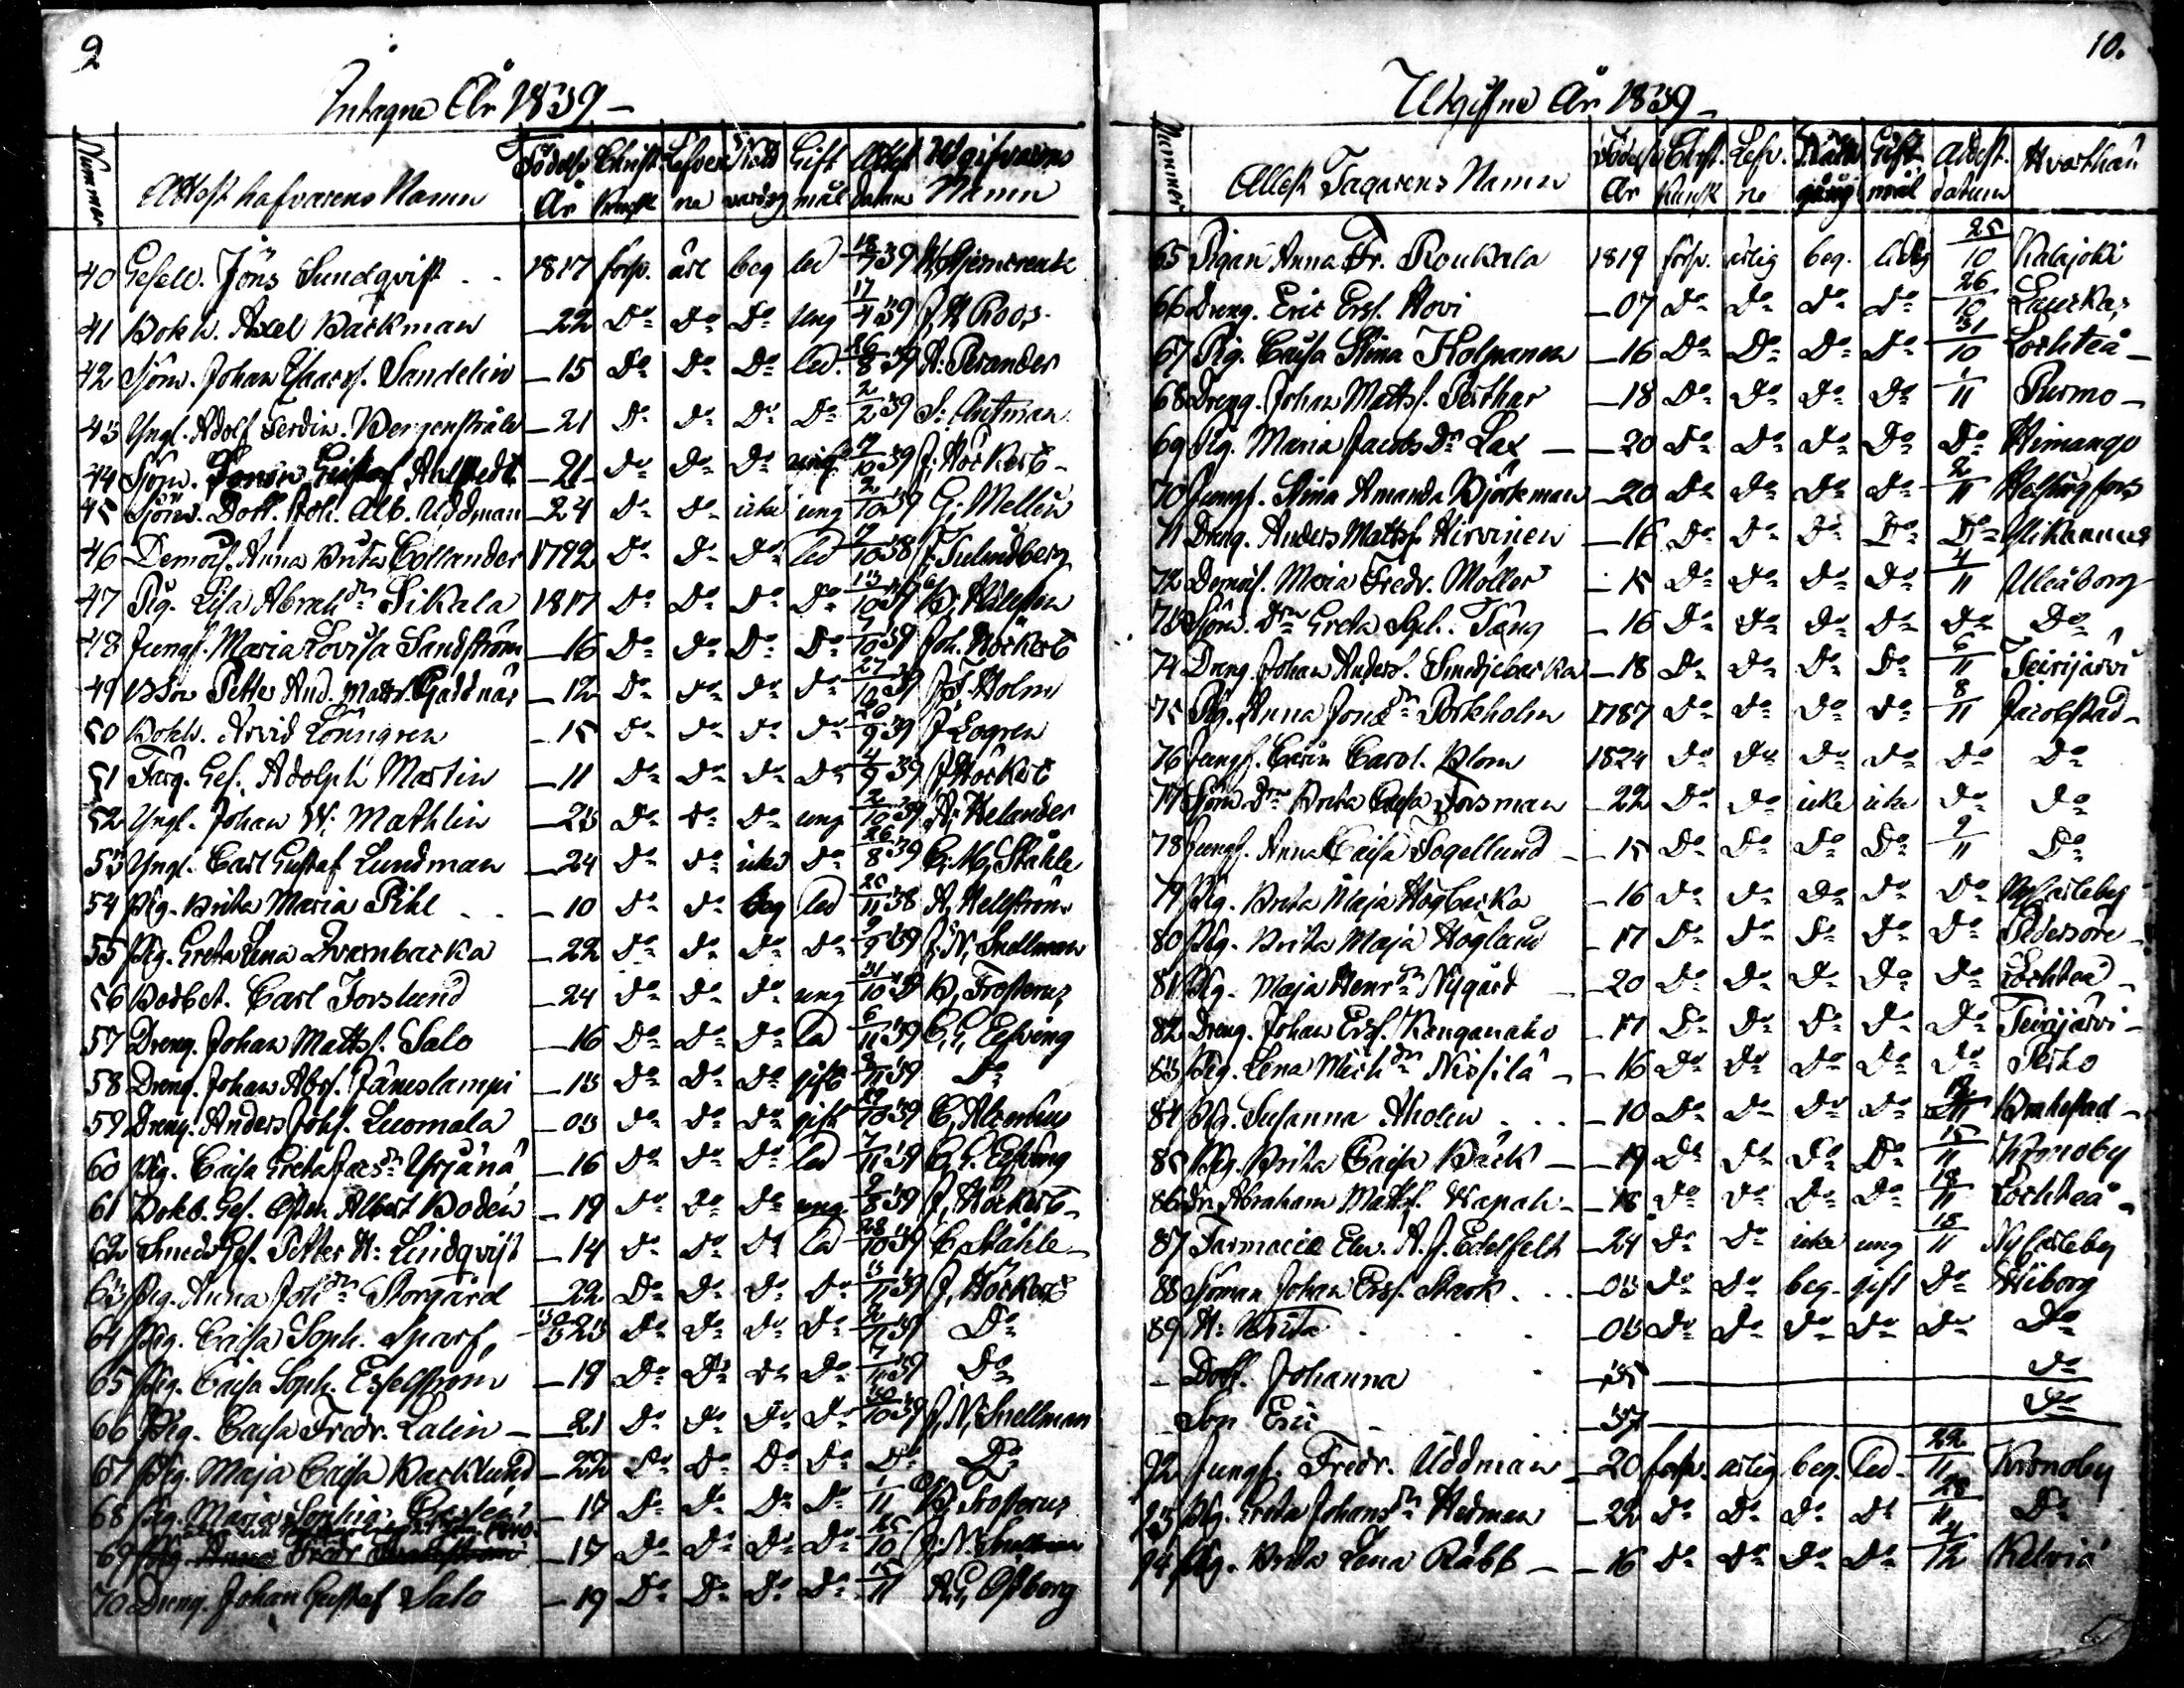 9
Intagne År 1839 –
Nummer Attest hafvarens Namn Födelse År Christ. Kunsk Lefver ne Natt vardsg Gift mål Attest Datum Utgifvarens Namn
40 Gesell. Jöns Sundqvist 1817 förp. ärl beg led 18/7 39
41 Bokh. Axel Backman – 22 Do Do Do ung 17/4 39 J. H. Roos
42 Sjöm. Johan Isacss. Sandelin – 15 Do Do Do led. 26/8 39 A. Perander
43 Yngl. Adolf Ferdin. Bergenstråle – 21 Do Do Do Do 2/2 39 S. Antman
44 Sjöm. Gustaf Ahlstedt – 21 Do Do Do ung 19/10 39 J. Höckert
45 Sjöm. Dott. Joh. Alb. Uddman – 24 Do Do icke ung 2/10 39 G. Mellin
46 Demois. Anna Brita Collander 1792 Do Do Do led 19/10 38
47 Pig. Lisa Abrahdr Sikala 1817 Do Do Do Do 13/10 39
48 Jungf. Maria Lovisa Sandström – 16 Do Do Do Do 7/10 39 Joh. Höckert
49 Petter And. Matts. Gäddnäs – 12 Do Do Do Do 27/10 39 J. F. Holm
50 Bokh. Arvid Lönngren – 15 Do Do Do Do 20/9 39 J. Logren
51 Färg. Ges. Adolph Martin – 11 Do Do Do Do 4/9 39 J. Höckert
52 Yngl. Johan W. Mathlin – 23 Do Do Do ung 2/10 39 A. Helander
53 Yngl. Carl Gustaf Lundman – 24 Do Do icke Do 26/8 39 C. M. Ståhle
54 Pig. Brita Maria Pihl – 10 Do Do beg led 20/11 38 A. Hellström
55 Pig. Greta Lena Qvarnbacka – 22 Do Do Do Do 9/9 39 J. N. Snellman
56 Carl Forslund – 24 Do Do Do ung 31/10 39 B. Frosterus
57 Dreng. Johan Mattss. Salo – 16 Do Do Do led 6/11 39 C. G. Elfving
58 Dreng. Johan Abrs. Jäneslampi – 13 Do Do Do gift 8/11 39 Do
59 Dreng. Anders Johss. Luomala – 03 Do Do Do gift 29/10 39 C. Alcenius
60 Pig. Caisa Greta Jacdr Yrjänä – 16 Do Do Do led 7/11 39 C. G. Elfving
61 Bokb. Ges. Albert Boden – 19 Do Do Do ung 9/8 39 J. Höckert
62 Smeds Ges. Petter H. Lindqvist – 14 Do Do Do led 28/10 39 C. Ståhle
63 Pig. Anna Johdr Storgård – 22 Do Do Do Do 13/11 39 J. Höckert
64 Pig. Caisa Soph. Sparf – 23 Do Do Do Do 2/11 39 Do
65 Pig. Caisa Soph. Esselström – 18 Do Do Do Do 7/10 39 Do
66 Pig. Caisa Fredr. Lalin – 21 Do Do Do Do 10/10 39 J. N. Snellman
67 Pig. Maja Caisa Backlund – 22 Do Do Do Do Do Do
68 Pig. Maria Sophia – 17 Do Do Do Do 1/11 B. Frosterus
69 Pig. Anna Fredr. – 17 Do Do Do Do 15/10 J. N. Snellman
70 Dreng. Johan Gustaf Salo – 19 Do Do Do Do 15/11 A. G. Östberg
10.
Utgifne År 1839 –
Nummer Attest Tagarens Namn Födelse År Christ. Kunsk Lefv. ne Natt. gång Gift mål Attest. datum Hvarthän
65 Pigan Anna Fr. Roukala 1819 förp. ärlig beg. ledig 25/10 Kalajoki
66 Dreng. Eric Erss. Hovi – 07 Do Do Do Do 26/10
67 Pig. Caisa Stina Holmanen – 16 Do Do Do Do 31/10 Lochteå –
68 Dreng. Johan Mattss. Perthar – 18 Do Do Do Do 1/11 Purmo –
69 Pig. Maria Jacobs Dr Lax – – 20 Do Do Do Do Do Himango
70 Jungf. Stina Amanda Björkman – 20 Do Do Do Do 2/11 Helsingfors
71 Dreng. Anders Mattss. Hirvinen – 16 Do Do Do Do Do Ylikannus
72 Demois. Maria Fredr. Möller – 15 Do Do Do Do 4/11 Uleåborg
73 Sjöm. Drn Greta Soph. Tång – 16 Do Do Do Do Do Do
74 Dreng. Johan Anders. Smedjebacka – 18 Do Do Do Do 6/11 Teirijärvi
75 Pig. Anna Jonsdr Storkholm 1787 Do Do Do Do 8/11 Jacobstad –
76 Jungf. Carin Carol. Blom 1824 Do Do Do Do Do Do
77 Sjöm. Drn Brita Caisa Forsman – 22 Do Do icke icke Do Do
78 Jungf. Anna Caisa Fogellund – 15 Do Do Do Do 9/11 Do
79 Pig. Brita Maja Högbacka – 16 Do Do Do Do Do Ny Carleby
80 Pig. Brita Maja Höglund – 17 Do Do Do Do Do Pedersöre –
81 Pig. Maja Henrdr Nygård – 20 Do Do Do Do Do Lochteå –
82 Dreng. Johan Erss. Kanganaho – 17 Do Do Do Do Do Teirijärvi –
83 Pig. Lena Michdr Nissilä – – 16 Do Do Do Do Do Perho
84 Pig. Susanna Aholen – 10 Do Do Do Do 12/11 Brahestad –
85 Pig. Brita Caisa Bäck – – 19 Do Do Do Do 15/11 Kronoby
86 Dr. Abraham Mattss. – 18 Do Do Do Do 18/11 Lochteå –
87 Farmacie Elev. A. J. Edelfelt – 24 Do Do icke ung 18/11 Ny Carleby
88 Sjöman Johan Erss. Stark – 03 Do Do beg. gift Do Wiborg
89 H: Brita – 03 Do Do Do Do Do Do
– Dott. Johanna Do
– Son Eric – 37 Do
92 Jungf. Fredr. Uddman – 20 förp. ärlig beg. led. 22/11 Kronoby
93 Pig. Greta Johansdr Hedman – 22 Do Do Do Do 28/11 Do
94 Pig. Brita Lena Rabb – – 16 Do Do Do Do 4/12 Kelviå